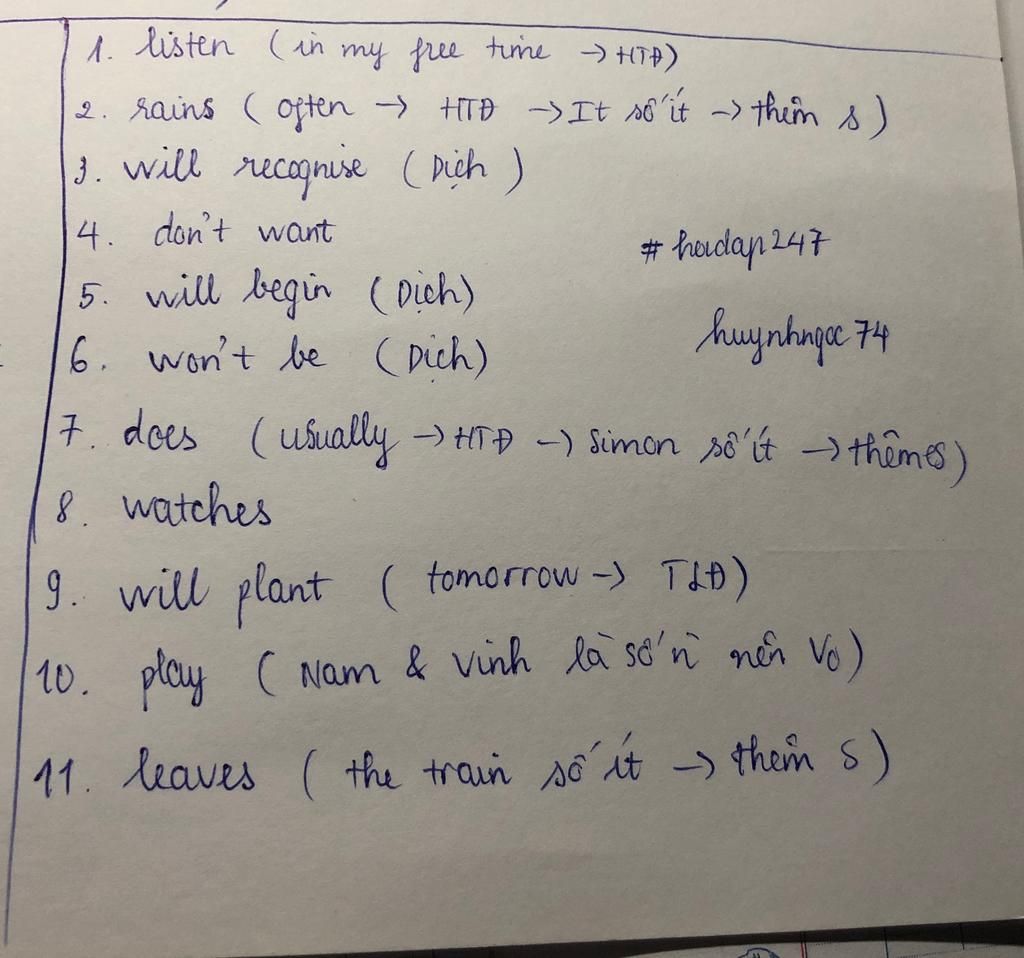 1. listen (in my free time → HTĐ)
2. rains (often → HTĐ → It số ít → thêm s)
3. will recognise (Dịch)
4. don't want
#hoidap247
5. will begin (Dịch)
huynhngoc74
6. won't be (Dịch)
7. does (usually → HTĐ → Simon số ít → thêm es)
8. watches
9. will plant (tomorrow → TLĐ)
10. play (Nam & Vinh là số n nên Vo)
11. leaves (the train số ít → thêm s)